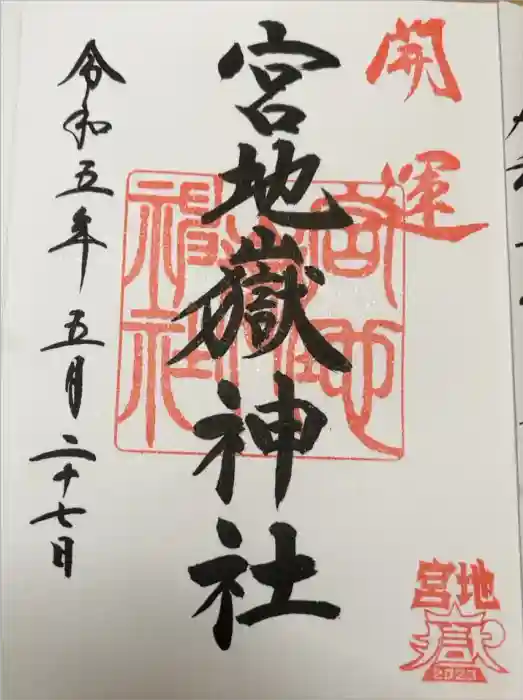 開運
宮地嶽神社
宮地嶽神社
令和五年五月二十七日
宮地
嶽
2023